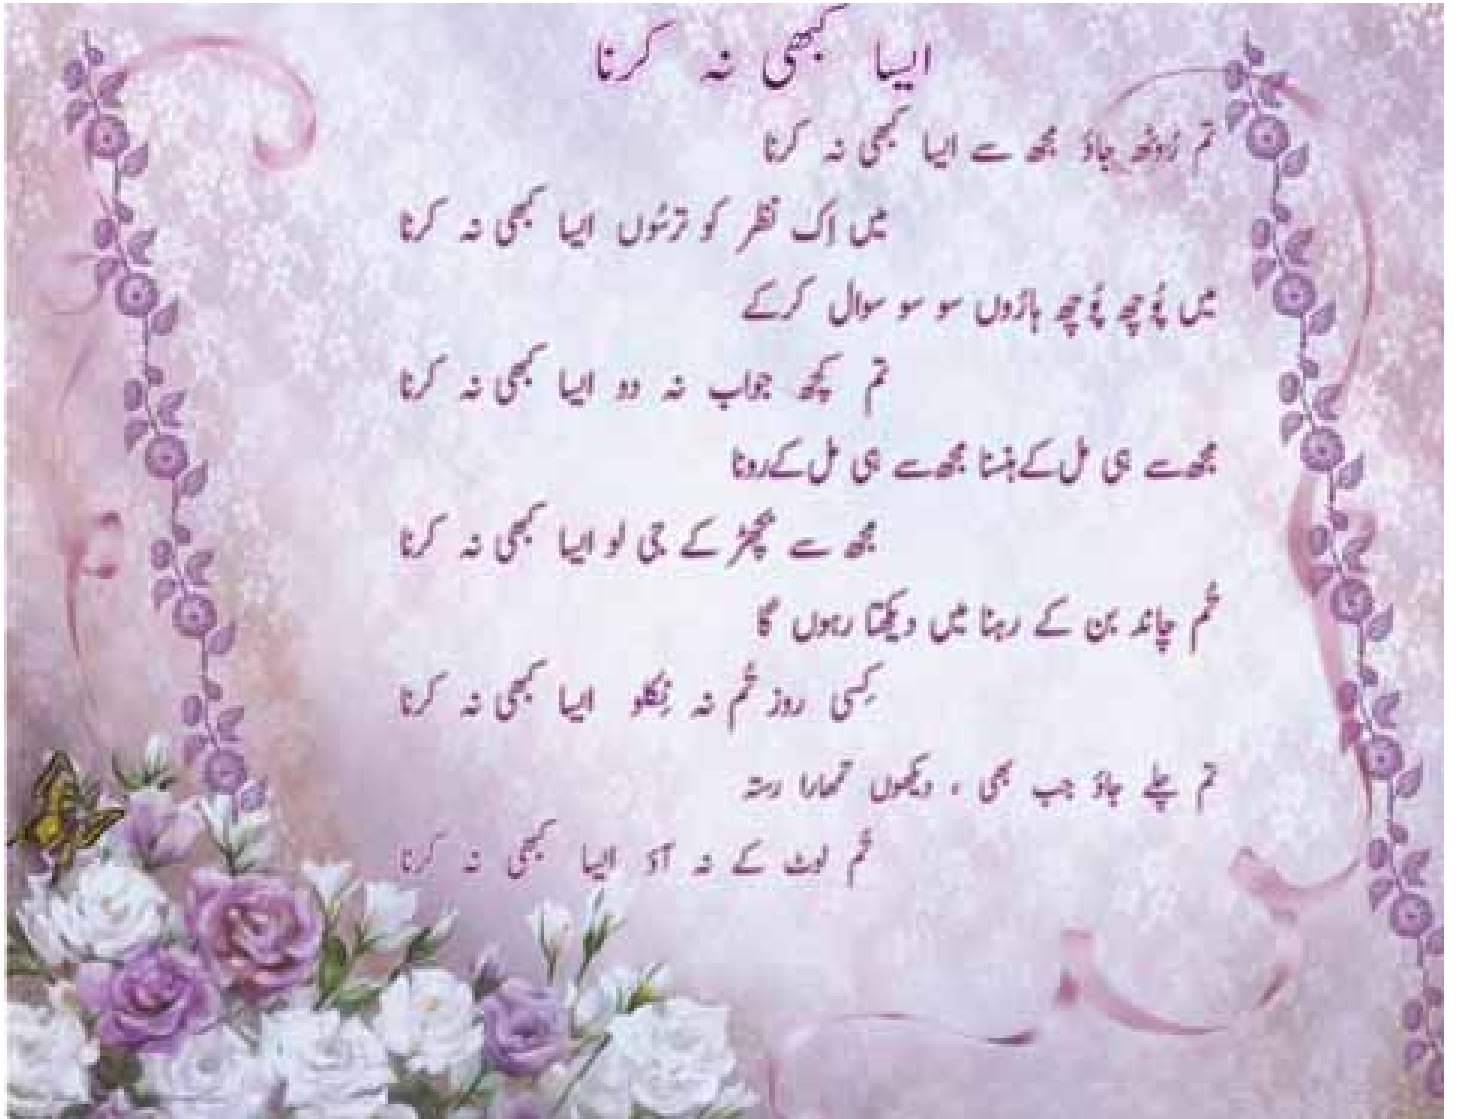 ایسا کبھی نہ کرنا
تم رُوٹھ جاؤ مجھ سے ایسا کبھی نہ کرنا
میں اِک نظر کو ترسُوں ایسا کبھی نہ کرنا
میں پُوچھ پُوچھ ہارُوں سو سو سوال کرکے
تم کچھ جواب نہ دو ایسا کبھی نہ کرنا
مجھ سے ہی مل کے ہنسنا مجھ سے ہی مل کے رونا
مجھ سے بچھڑ کے جی لو ایسا کبھی نہ کرنا
تُم چاند بن کے رہنا میں دیکھتا رہوں گا
کِسی روز تُم نہ نِکلو ایسا کبھی نہ کرنا
تم چلے جاؤ جب بھی ، دیکھوں تمھارا رستہ
تُم لوٹ کے نہ آؤ ایسا کبھی نہ کرنا